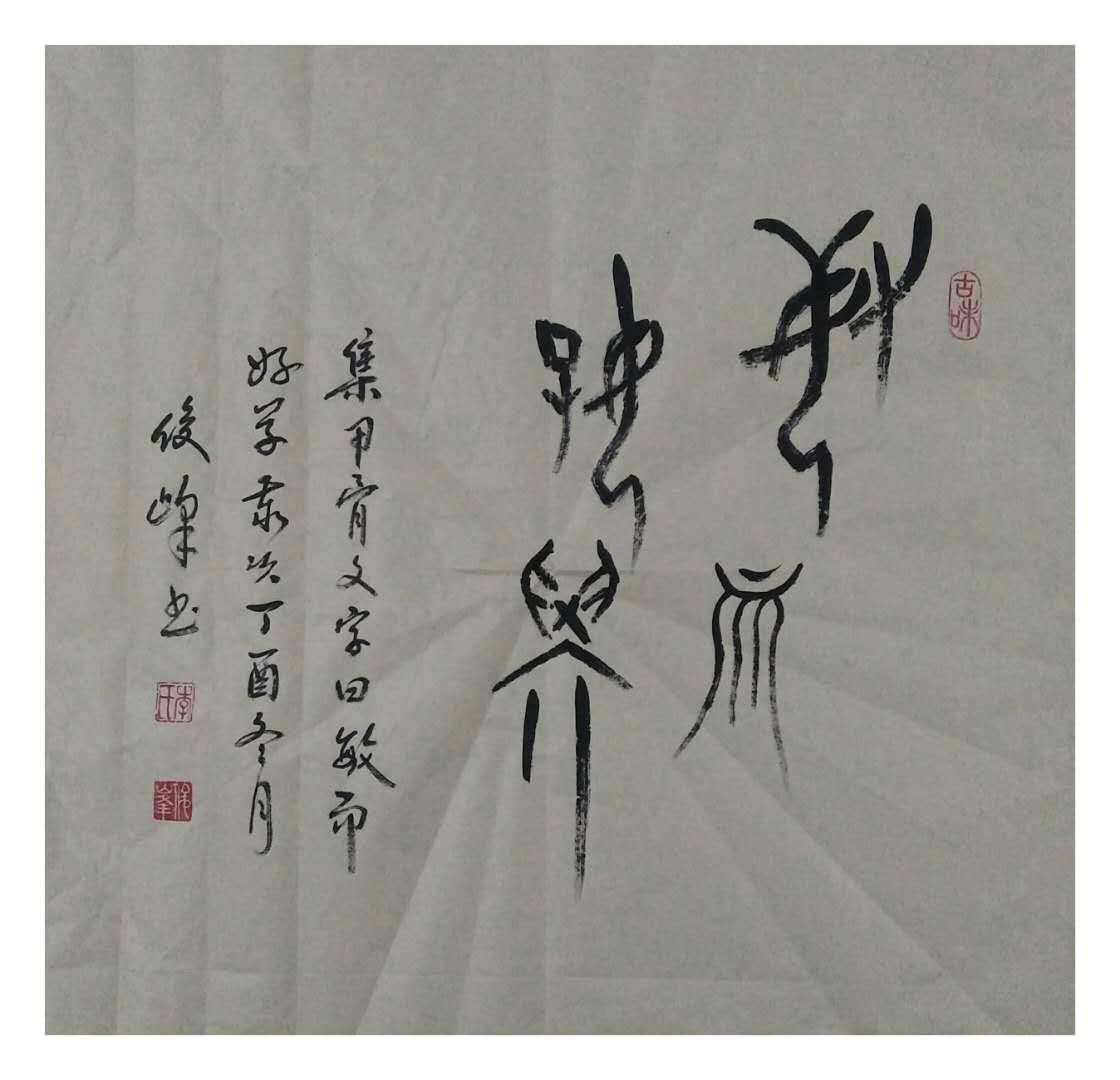 敏而
好學
集甲骨文字曰敏而
好学岁次丁酉冬月
俊峰书
古味
李氏
俊峰